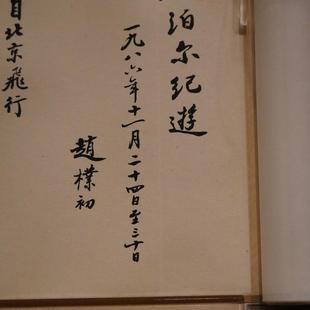 泊尔紀遊
一九八六年十一月二十四日至三十日
趙樸初
自北京飛行